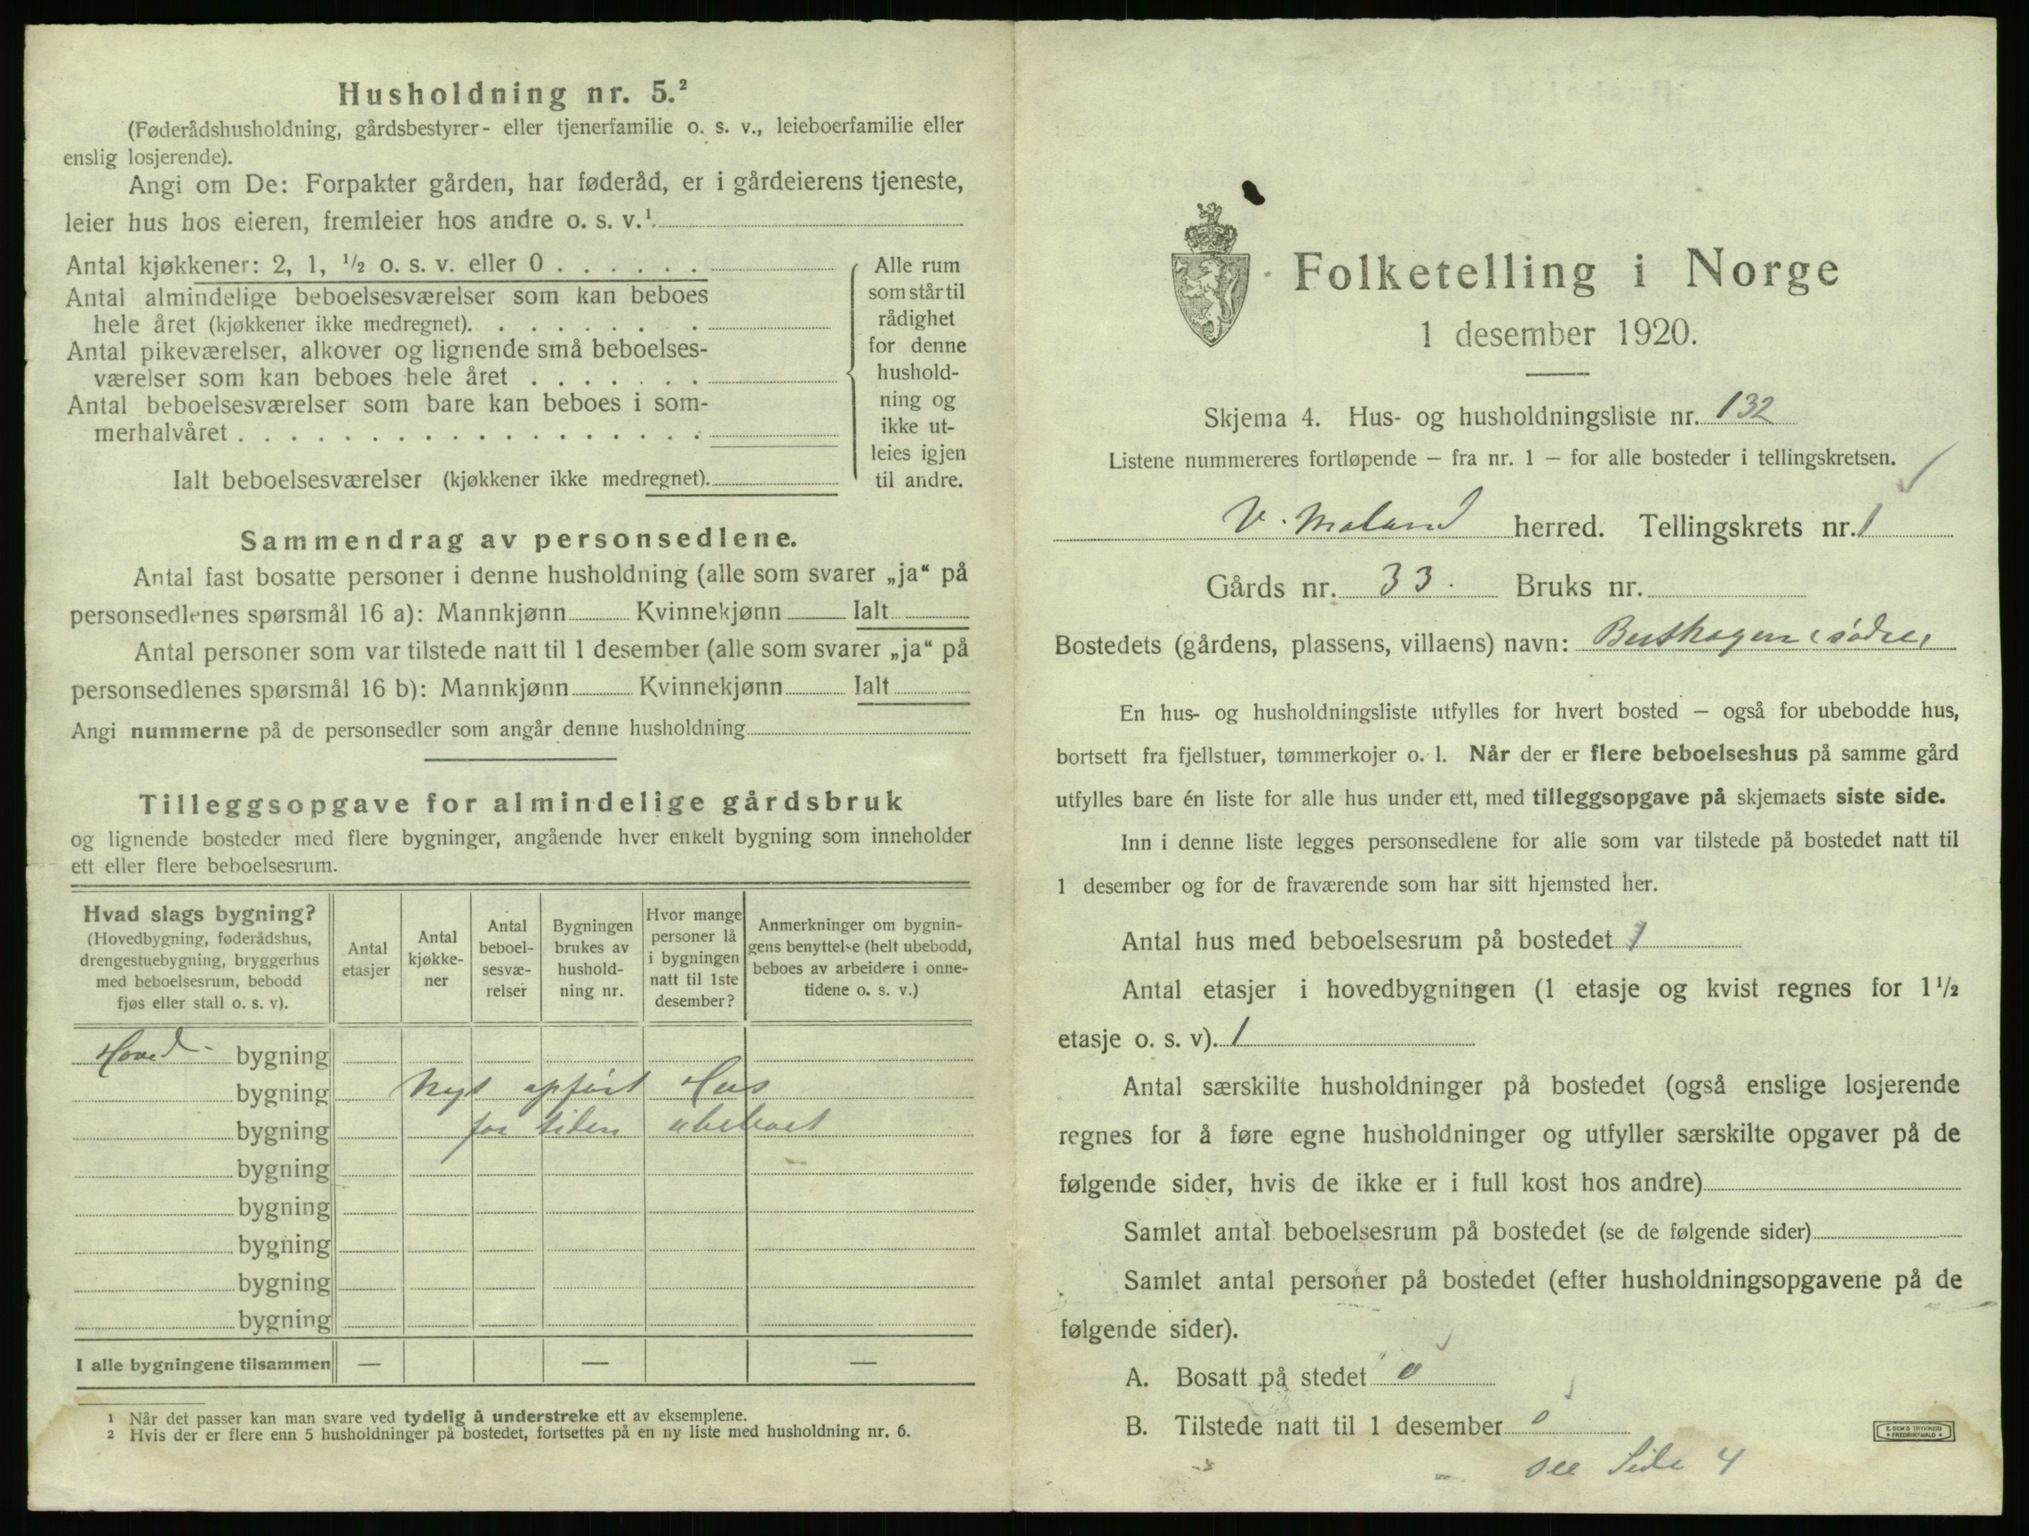 Husholdning nr. 5.²
(Føderådshusholdning, gårdsbestyrer- eller tjenerfamilie o. s. v., leieboerfamilie eller
enslig losjerende).
Angi om De: Forpakter gården, har føderåd, er i gårdeierens tjeneste,
leier hus hos eieren, fremleier hos andre o. s. v.¹
Antal kjøkkener: 2, 1, ½ o. s. v. eller 0 . . . . . .
Antal almindelige beboelsesværelser som kan beboes
hele året (kjøkkener ikke medregnet). . . . . . . .
Antal pikeværelser, alkover og lignende små beboelses-
værelser som kan beboes hele året . . . . . . .
Antal beboelsesværelser som bare kan beboes i som-
merhalvåret . . . . . . . . . . . . . . . . . .
Ialt beboelsesværelser (kjøkkener ikke medregnet).
Alle rum
som står til
rådighet
for denne
hushold-
ning og
ikke ut-
leies igjen
til andre.
Sammendrag av personsedlene.
Antal fast bosatte personer i denne husholdning (alle som svarer „ja“ på
personsedlenes spørsmål 16 a): Mannkjønn Kvinnekjønn Ialt
Antal personer som var tilstede natt til 1 desember (alle som svarer „ja“ på
personsedlenes spørsmål 16 b): Mannkjønn Kvinnekjønn Ialt
Angi nummerne på de personsedler som angår denne husholdning
Tilleggsopgave for almindelige gårdsbruk
og lignende bosteder med flere bygninger, angående hver enkelt bygning som inneholder
ett eller flere beboelsesrum.
Hvad slags bygning?
(Hovedbygning, føderådshus,
drengestuebygning, bryggerhus
med beboelsesrum, bebodd
fjøs eller stall o. s. v).
Antal
etasjer
Antal
kjøkke-
ner
Antal
beboel-
sesvæ-
relser
Bygningen
brukes av
hushold-
ning nr.
Hvor mange
personer lå
i bygningen
natt til 1ste
desember?
Anmerkninger om bygnin-
gens benyttelse (helt ubebodd,
beboes av arbeidere i onne-
tidene o. s. v.)
Hoved- bygning
bygning Nyt opført Hus
bygning for tiden ubeboet
bygning
bygning
bygning
bygning
bygning
I alle bygningene tilsammen — — —
1 Når det passer kan man svare ved tydelig å understreke ett av eksemplene.
2 Hvis der er flere enn 5 husholdninger på bostedet, fortsettes på en ny liste med husholdning nr. 6.
Folketelling i Norge
1 desember 1920.
Skjema 4. Hus- og husholdningsliste nr. 132
Listene nummereres fortløpende – fra nr. 1 – for alle bosteder i tellingskretsen.
V. Moland herred. Tellingskrets nr. 1
Gårds nr. 33. Bruks nr.
Bostedets (gårdens, plassens, villaens) navn: sødre
En hus- og husholdningsliste utfylles for hvert bosted – også for ubebodde hus,
bortsett fra fjellstuer, tømmerkojer o. l. Når der er flere beboelseshus på samme gård
utfylles bare én liste for alle hus under ett, med tilleggsopgave på skjemaets siste side.
Inn i denne liste legges personsedlene for alle som var tilstede på bostedet natt til
1 desember og for de fraværende som har sitt hjemsted her.
Antal hus med beboelsesrum på bostedet 1
Antal etasjer i hovedbygningen (1 etasje og kvist regnes for 1½
etasje o. s. v). 1
Antal særskilte husholdninger på bostedet (også enslige losjerende
regnes for å føre egne husholdninger og utfyller særskilte opgaver på de
følgende sider, hvis de ikke er i full kost hos andre)
Samlet antal beboelsesrum på bostedet (se de følgende sider)
Samlet antal personer på bostedet (efter husholdningsopgavene på de
følgende sider).
A. Bosatt på stedet 0
B. Tilstede natt til 1 desember 0
see Side 4